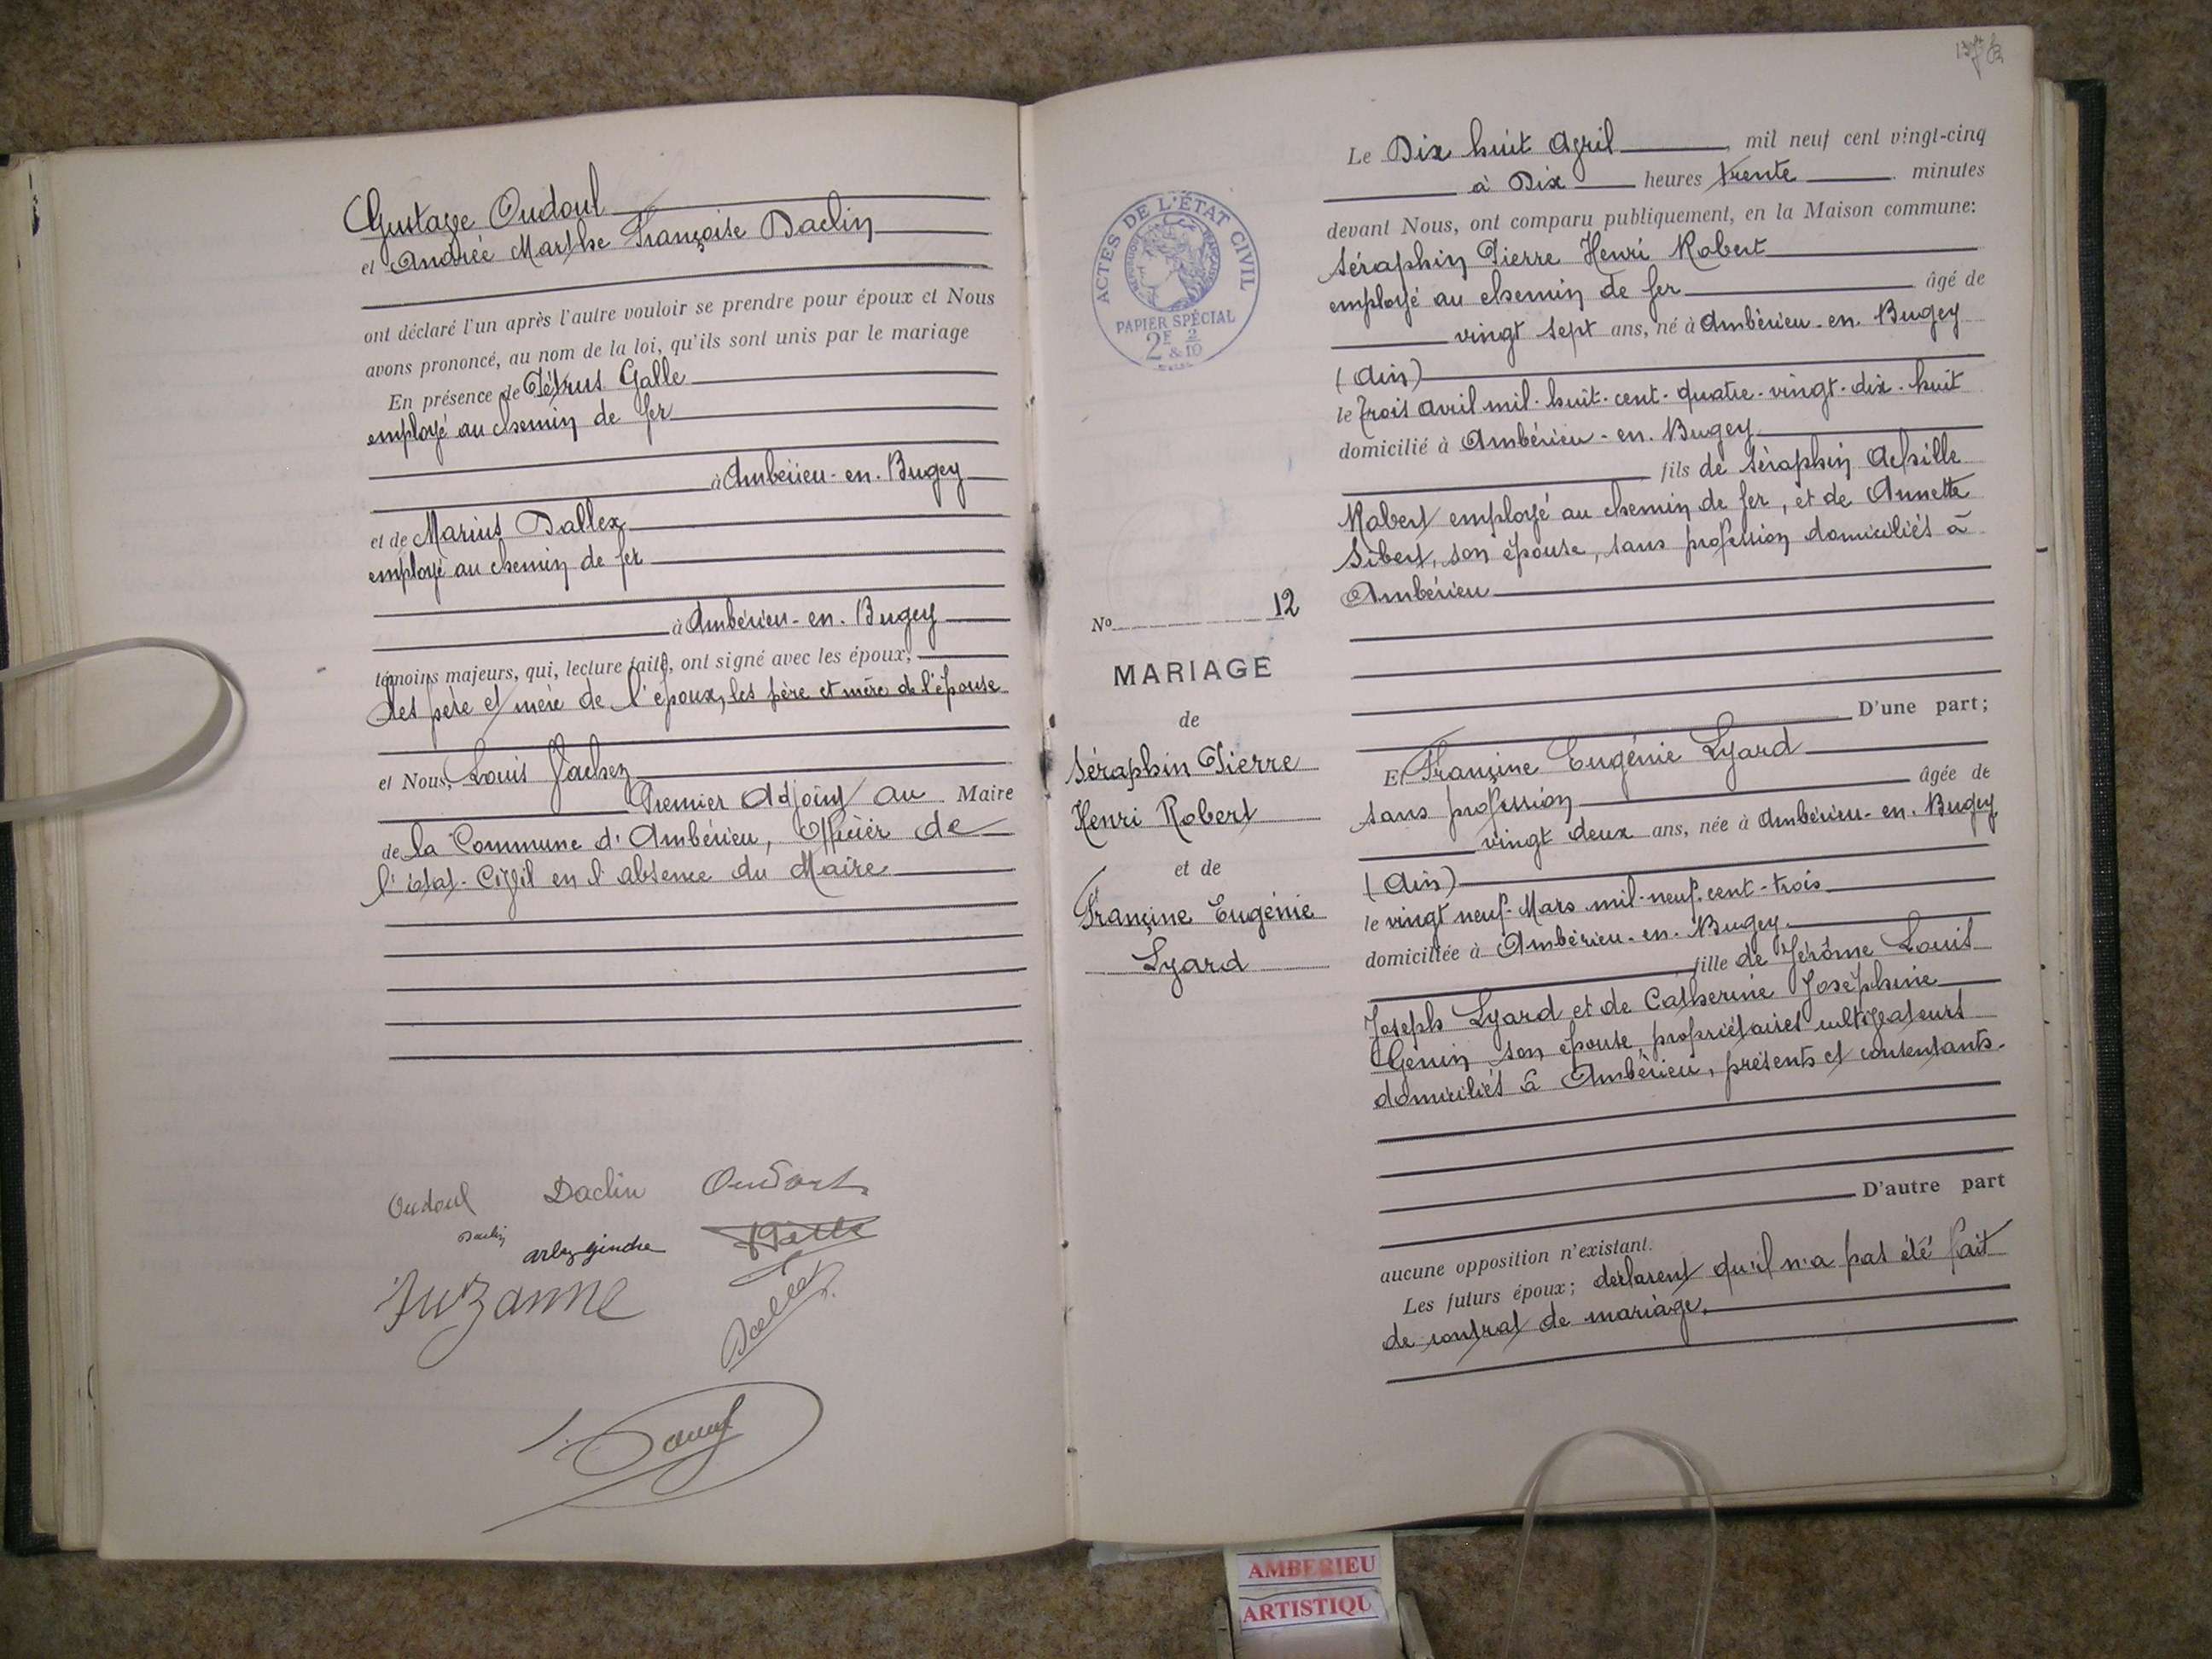 Gustave Oudoul
et Andrée Marthe Françoise Daclin
ont déclaré l'un après l'autre vouloir se prendre pour époux et Nous
avons prononcé, au nom de la loi, qu'ils sont unis par le mariage
En présence de Pétrus Galle
employé au chemin de fer
à Ambérieu-en-Bugey
et de Marius Dallex
employé au chemin de fer
à Ambérieu-en-Bugey
témoins majeurs, qui, lecture faite, ont signé avec les époux,
les père et mère de l'époux, les père et mère de l'épouse
et Nous, Louis
Premier Adjoint au Maire
de la Commune d'Ambérieu, Officier de
l'état-Civil en l'absence du Maire
Oudoul Daclin
Daclin
Suzanne
Le Dix huit Avril, mil neuf cent vingt-cinq
à Dix heures trente minutes
devant Nous, ont comparu publiquement, en la Maison commune:
Séraphin Pierre Henri Robert
employé au chemin de fer âgé de
vingt sept ans, né à Ambérieu-en-Bugey
(Ain)
le trois avril mil-huit-cent-quatre-vingt-dix-huit
domicilié à Ambérieu-en-Bugey
fils de Séraphin Achille
Robert employé au chemin de fer, et de Annette
Sibert, son épouse, sans profession domiciliés à
Ambérieu
D'une part;
Et Françine Eugénie Lyard
sans profession âgée de
vingt deux ans, née à Ambérieu-en-Bugey
(Ain)
le vingt neuf-Mars mil-neuf-cent-trois
domiciliée à Ambérieu-en-Bugey
fille de Jérôme Louis
Joseph Lyard et de Catherine Joséphine
Genin son épouse propriétaires cultivateurs
domiciliés à Ambérieu, présents et consentants.
D'autre part
aucune opposition n'existant.
Les futurs époux; déclarent qu'il n'a pas été fait
de contrat de mariage.
ACTES DE L'ÉTAT CIVIL
PAPIER SPÉCIAL
2E & 2/10
No 12
MARIAGE
de
Séraphin Pierre
Henri Robert
et de
Françine Eugénie
Lyard
AMBERIEU
ARTISTIQU